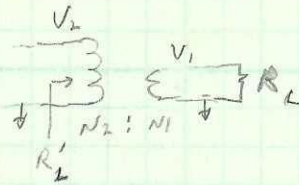 V₂
V₁
R_L
N2 : N1
R'_L